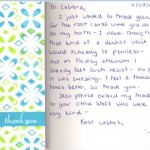 Dr. Cabrera,
I just wanted to thank you
for the root canal work you did
on my tooth - I never thought
that kind of a dentist visit
would actually be painless -
but on Friday afternoon I
already felt such relief. So
it was amazing. I felt a thousand
times better.
Also please extend my thanks
to your office staff who were
very kind -
Best wishes,
thank you